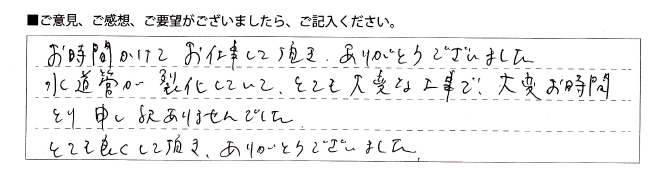 ■ご意見、ご感想、ご要望がございましたら、ご記入ください。
お時間かけて お仕事して頂き、ありがとうございました
水道管が裂化していて、とても大変な工事で、大変お時間
とり 申し訳ありませんでした
とても良くして頂き、ありがとうございました。